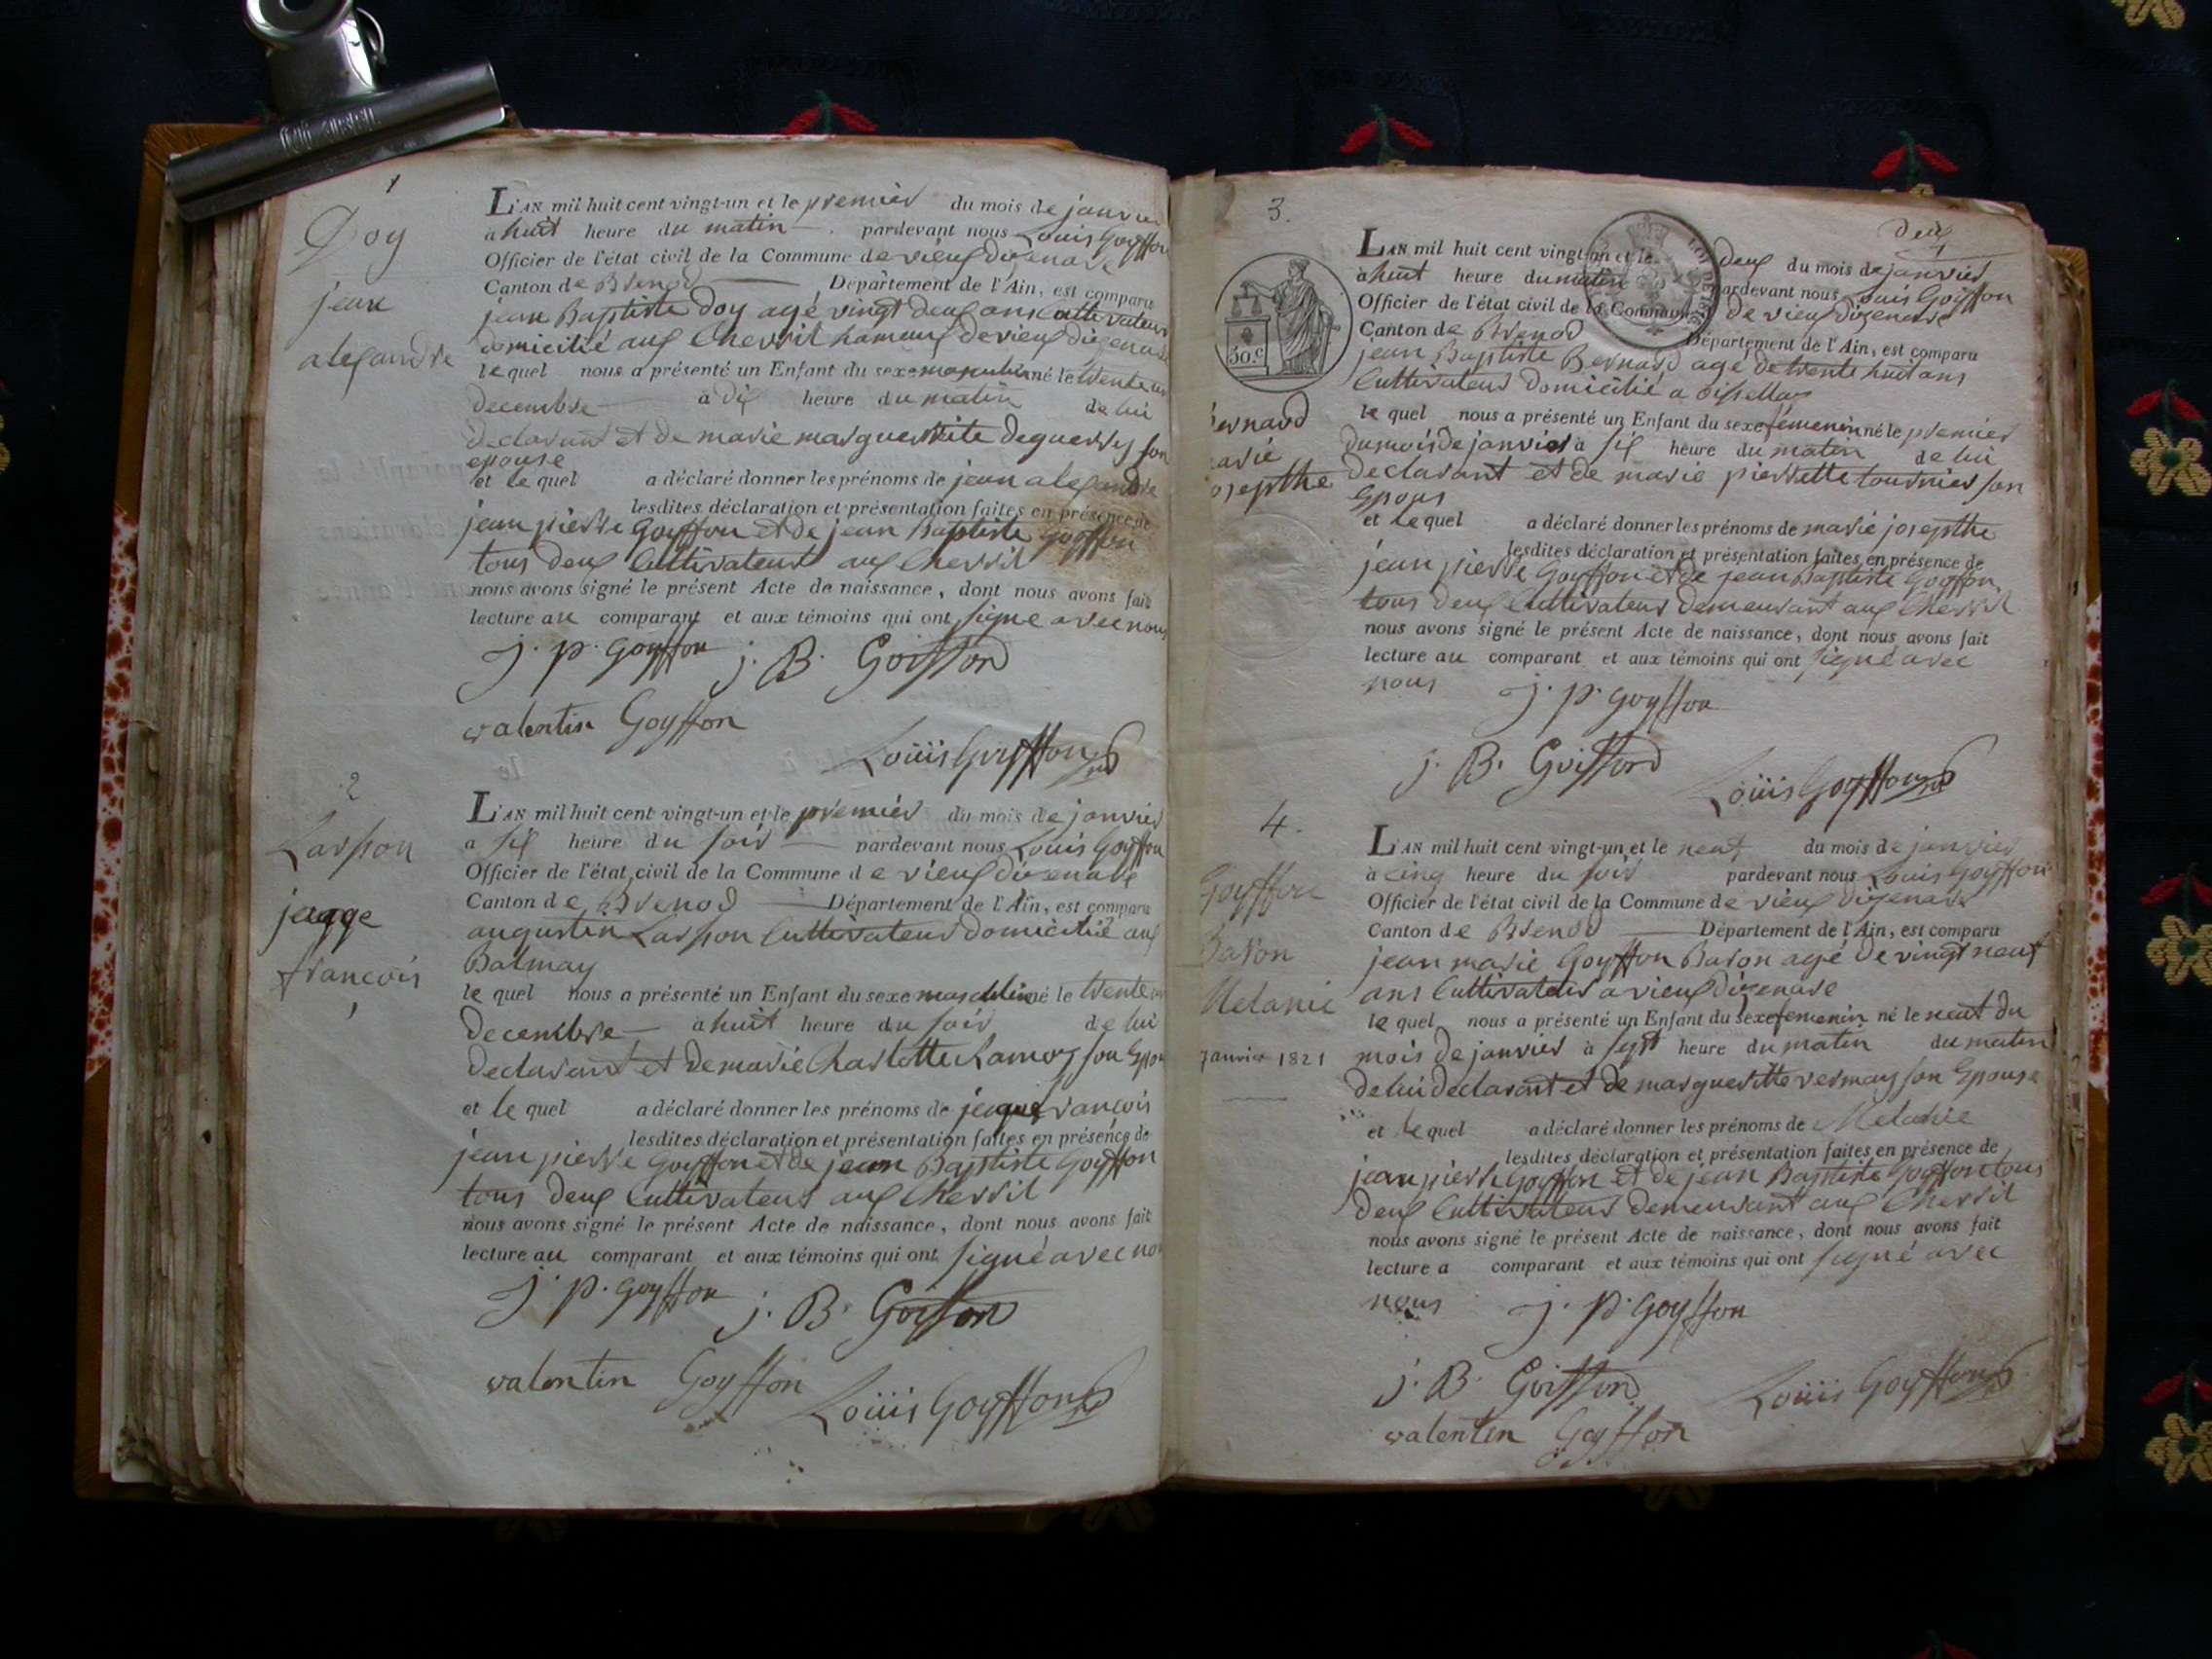 1
Doy
jean
alexandre
L'AN mil huit cent vingt-un et le premier du mois de janvier
a huit heure du matin pardevant nous Louis Goyffon
Officier de l'état civil de la Commune de vieux dizenave
Canton de Brenod Département de l'Ain, est comparu
jean Baptiste Doy agé vingt deux ans Cultivateur
domicilié aux Chevril hameux de vieux dizenave
le quel nous a présenté un Enfant du sexe masculin né le trente un
decembre à dix heure du matin de lui
declarant et de marie marguerite deguerry son
epouse
et le quel a déclaré donner les prénoms de jean alexandre
lesdites déclaration et présentation faites en présence de
jean pierre Goyffon et de jean Baptiste goyffon
tous deux Cultivateurs aux Chevril
nous avons signé le présent Acte de naissance, dont nous avons fait
lecture au comparant et aux témoins qui ont signe avec nous
j. p. goyffon j. B. Goiffond
valentin Goyffon
Louis Goyffon
2
Larpon
jaqqe
francois
L'AN mil huit cent vingt-un et le premier du mois de janvier
a six heure du soir pardevant nous Louis Goyffon
Officier de l'état civil de la Commune de vieux dizenave
Canton de Brenod Département de l'Ain, est comparu
augustin Larpon Cultivateur domicilié aux
Balmay
le quel nous a présenté un Enfant du sexe masculin né le trente un
decembre a huit heure du soir de lui
declarant et de marie Charlotte Ramoz son Epou
et le quel a déclaré donner les prénoms de jaque francois
lesdites déclaration et présentation faites en présence de
jean pierre Goyffon et de jean Baptiste Goyffon
tous deux Cultivateurs aux Chevril
nous avons signé le présent Acte de naissance, dont nous avons fait
lecture au comparant et aux témoins qui ont signé avec nou
j. p. goyffon j. B. Goiffond
valentin Goyffon Louis Goyffon
3.
deux
30.c
LOI DE 1816
Bernard
marie
josepthe
L'AN mil huit cent vingt-un et le deux du mois de janvier
à huit heure du matin pardevant nous Louis Goiffon
Officier de l'état civil de la Commune de vieux dizenave
Canton de Brenod Département de l'Ain, est comparu
jean Baptiste Bernard agé de trente huit ans
Cultivateur domicilié a
le quel nous a présenté un Enfant du sexe femenin né le premier
du mois de janvier à six heure du matin de lui
declarant et de marie pierrette tournier son
Epous
et le quel a déclaré donner les prénoms de marie josepthe
lesdites déclaration et présentation faites en présence de
jean pierre Goyffon et de jean Baptiste Goyffon
tous deux Cultivateur demeurant aux Chevril
nous avons signé le présent Acte de naissance, dont nous avons fait
lecture au comparant et aux témoins qui ont signé avec
nous j. p. goyffon
j. B. Goiffond Louis Goyffon
4.
Goyffon
Baron
Melanie
janvier 1821
L'AN mil huit cent vingt-un et le neuf du mois de janvier
à cinq heure du soir pardevant nous Louis Goyffon
Officier de l'état civil de la Commune de vieux dizenave
Canton de Brenod Département de l'Ain, est comparu
jean marie Goyffon Baron agé de vingt neuf
ans Cultivateur a vieux dizenave
le quel nous a présenté un Enfant du sexe femenin né le neuf du
mois de janvier à sept heure du matin du matin
de lui declarant et de margueritte vermay son Epouse
et le quel a déclaré donner les prénoms de Melanie
lesdites déclaration et présentation faites en présence de
jean pierre goyffon et de jean Baptiste Goyffon tous
deux Cultivateurs demeurant aux Chevril
nous avons signé le présent Acte de naissance, dont nous avons fait
lecture a comparant et aux témoins qui ont signé avec
nous j. p. goyffon
j. B. Goiffond Louis Goyffon
valentin Goyffon